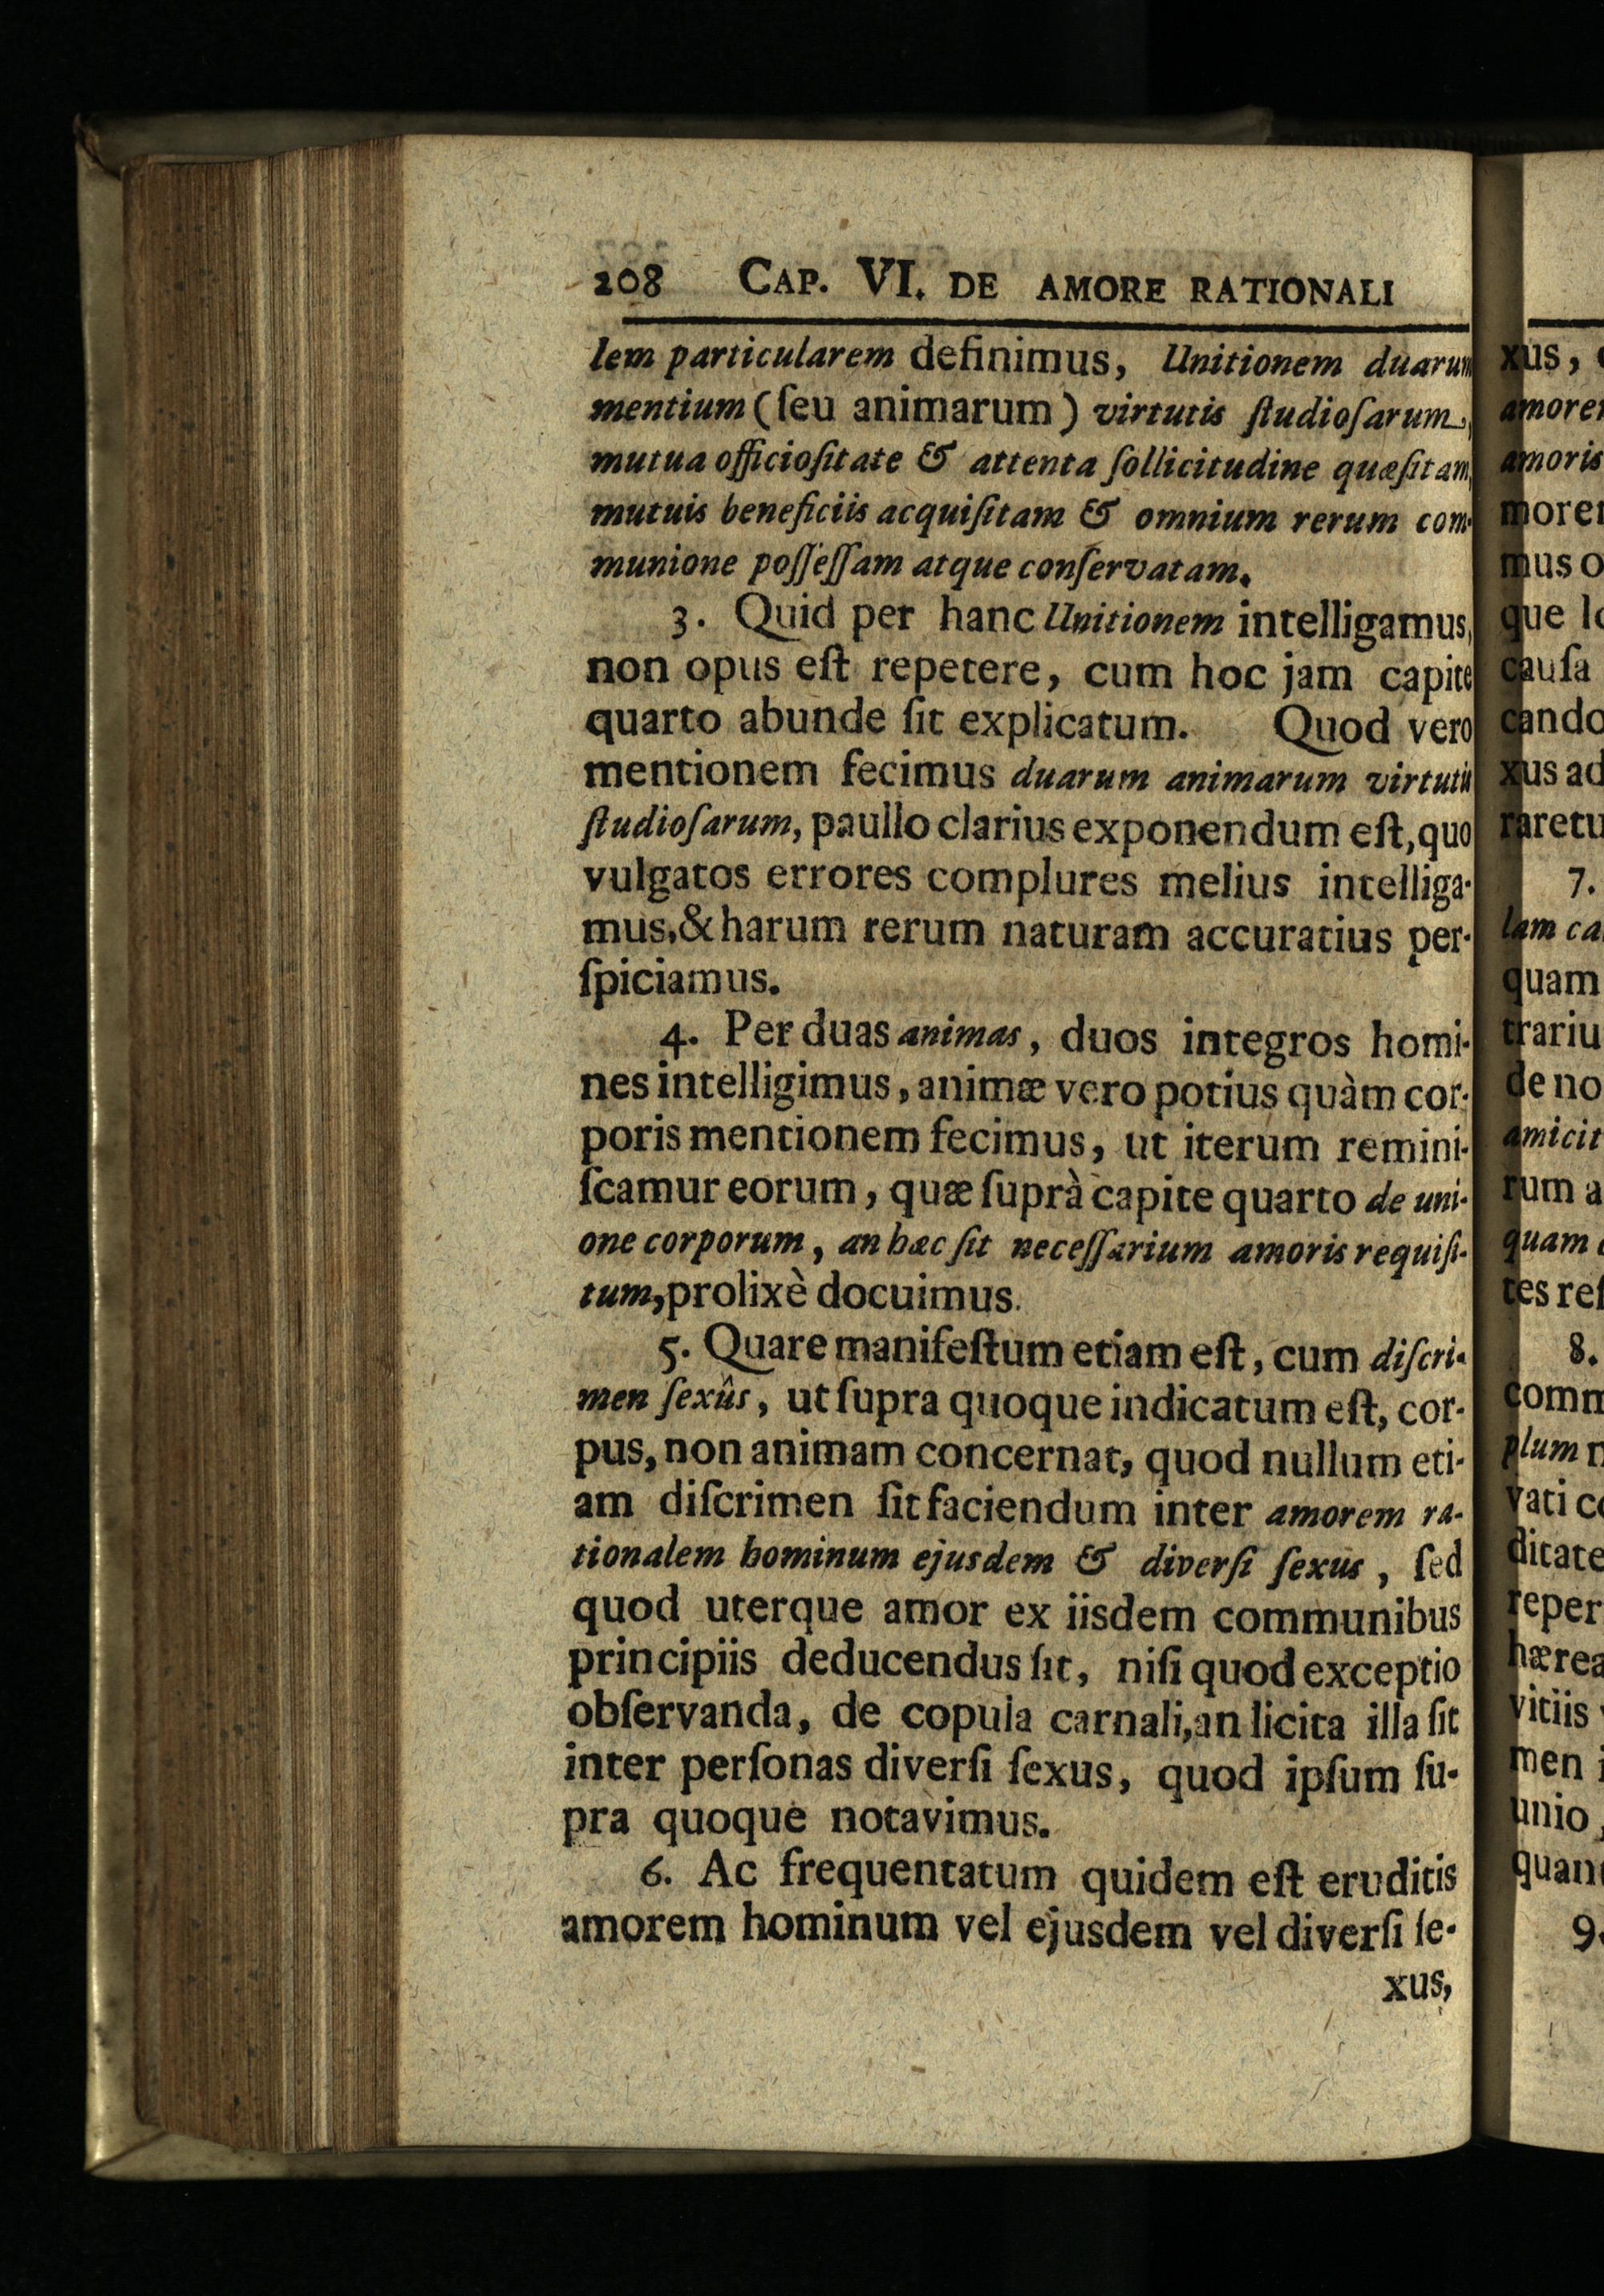 208 CAP. VI. DE AMORE RATIONALI
lem particularem definimus, Unitionem duarum
mentium (ſeu animarum) virtutis ſtudioſarum,
mutua officioſitate & attenta ſollicitudine quæſitam,
mutuis beneficiis acquiſitam & omnium rerum com-
munione poſſeſſam atque conſervatam.
3. Quid per hanc Unitionem intelligamus,
non opus eſt repetere, cum hoc jam capite
quarto abunde ſit explicatum. Quod vero
mentionem fecimus duarum animarum virtutis
ſtudioſarum, paullo clarius exponendum eſt, quo
vulgatos errores complures melius intelliga-
mus, & harum rerum naturam accuratius per-
ſpiciamus.
4. Per duas animas, duos integros homi-
nes intelligimus, animæ vero potius quàm cor-
poris mentionem fecimus, ut iterum remini-
ſcamur eorum, quæ ſuprà capite quarto de uni-
one corporum, an hæc ſit neceſſarium amoris requiſi-
tum, prolixè docuimus.
5. Quare manifeſtum etiam eſt, cum diſcri-
men ſexûs, ut ſupra quoque indicatum eſt, cor-
pus, non animam concernat, quod nullum eti-
am diſcrimen ſit faciendum inter amorem ra-
tionalem hominum ejusdem & diverſi ſexus, ſed
quod uterque amor ex iisdem communibus
principiis deducendus ſit, niſi quod exceptio
obſervanda, de copula carnali, an licita illa ſit
inter perſonas diverſi ſexus, quod ipſum ſu-
pra quoque notavimus.
6. Ac frequentatum quidem eſt eruditis
amorem hominum vel ejusdem vel diverſi ſe-
xus,
xus,
amoris
mus o
cauſa
xus ad
7.
quam
de no
rum a
quam
8.
plum
vitiis
men
unio,
9.